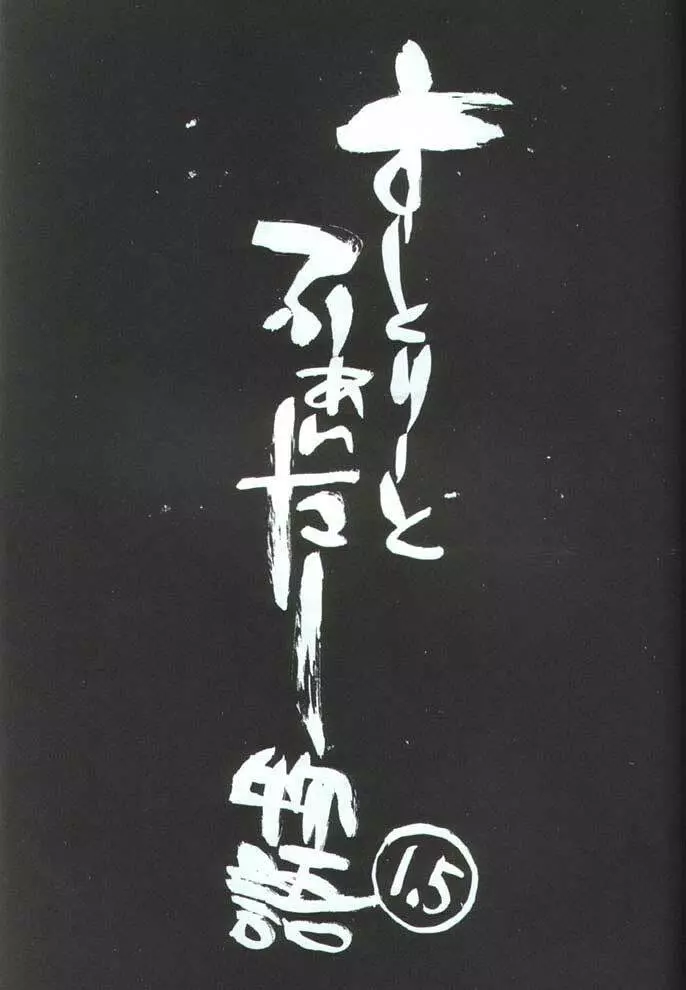 すーとりーと
ふぁいたー
物語
1.5